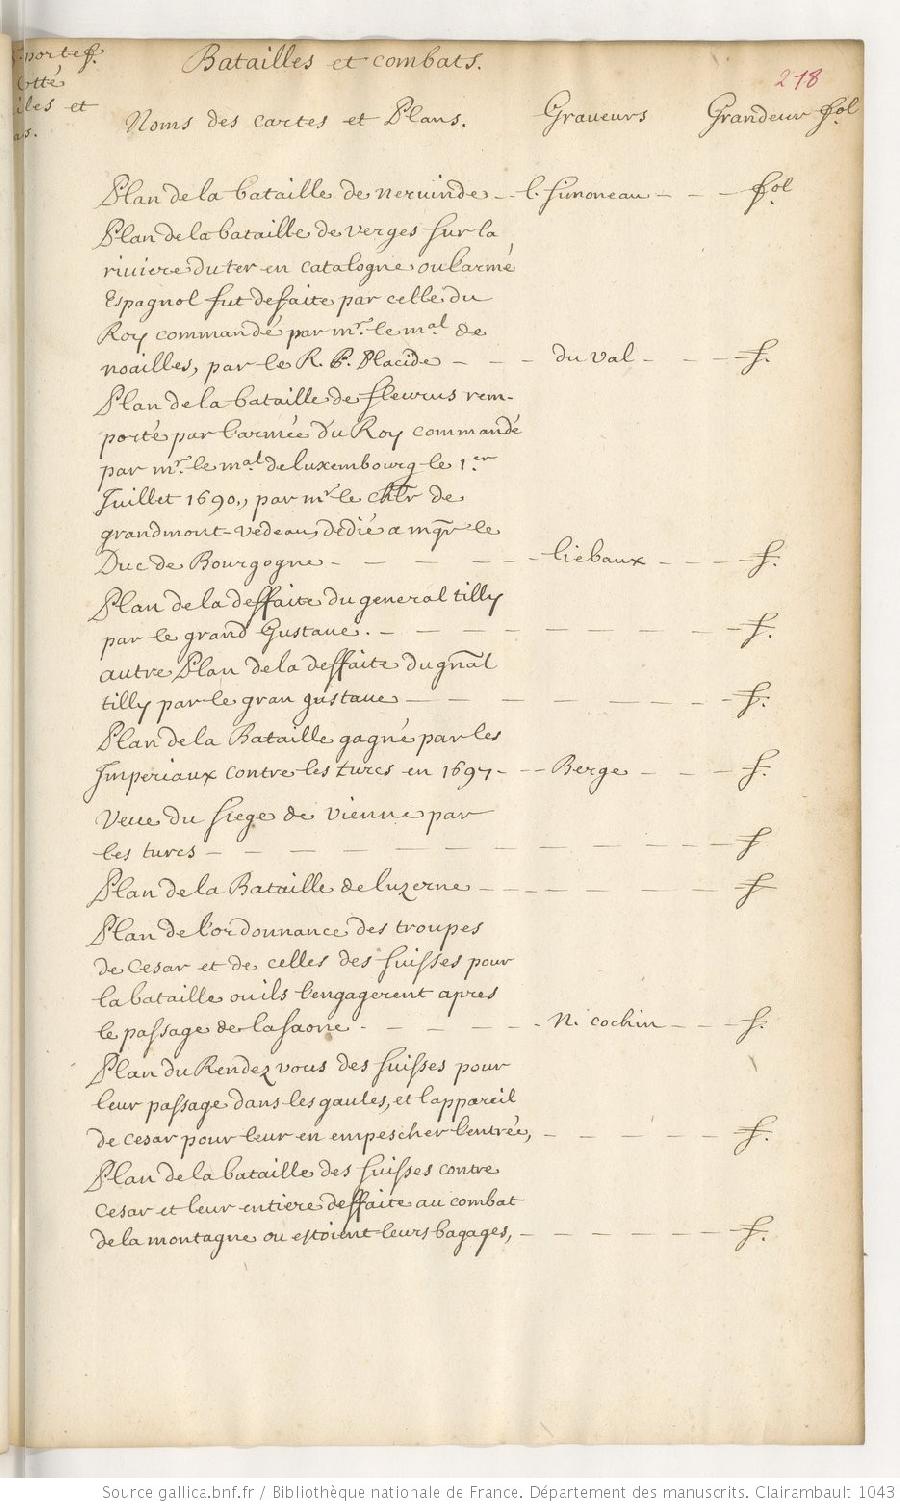 portef.
cotté
iles et
as.
Batailles et combats.
218
Noms des cartes et Plans. Graveurs Grandeur fol
Plan de la bataille de nervinde - - l. simoneau - - - fol
Plan de la bataille de verges sur la
riviere du ter en catalogne ou l'armé
Espagnol fut defaite par celle du
Roy commandé par mr. le mal de
noailles, par le R. P. Placide - - - du val - - - f.
Plan de la bataille de fleurus rem-
porté par l'armée du Roy commandé
par mr. le mal. de luxembourg le 1.er
Juillet 1690., par mr. le chlr de
grandmont-vedeau, dedié a mgr le
Duc de Bourgogne - - - - - - liebaux - - - f.
Plan de la deffaite du general tilly
par le grand Gustave. - - - - - - - - - f.
autre Plan de la deffaite du gnal
tilly par le gran gustave - - - - - - - - f.
Plan de la Bataille gagné par les
Imperiaux contre les turcs en 1697 - - - Berge - - - f.
Veue du siege de vienne par
les turcs - - - - - - - - - - - - f
Plan de la Bataille de luzerne - - - - - - - - f
Plan de l'ordonnance des troupes
de Cesar et de celles des suisses pour
la bataille ou ils l'engagerent apres
le passage de la saone - - - - - - N. cochin - - - f.
Plan du Rendez vous des suisses pour
leur passage dans les gaules, et l'appareil
de cesar pour leur en empescher l'entrée, - - - - - f.
Plan de la bataille des suisses contre
Cesar et leur entiere deffaite au combat
de la montagne ou estoient leurs bagages, - - - - - - f.
Source gallica.bnf.fr / Bibliothèque nationale de France. Département des manuscrits. Clairambault 1043